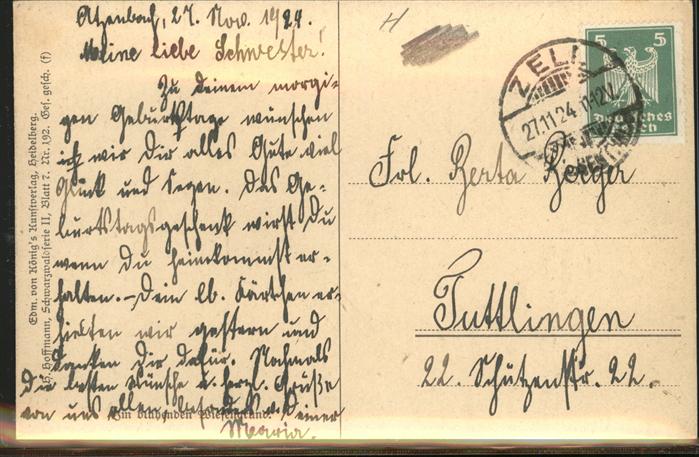 Atzenbach, 27. Nov. 1924.
Meine liebe Schwester!
Zu Deinem morgi-
gen Geburtstage wünschen
ich wir Dir alles Gute viel
Glück und Segen. Das Ge-
burtstagsgeschenk wirst Du
wenn Du heimkommst er-
halten. – Dein lb. Kärtchen er-
hielten wir gestern und
danken Dir dafür. Nochmals
die besten Wünsche u. herzl. Grüße
von uns allen besonders v. Deiner
Maria.
Im blühenden Wiesengrund.
Edm. von König's Kunstverlag, Heidelberg.
H. Hoffmann, Schwarzwaldserie II, Blatt 7. Nr. 192. Ges. gesch. (f)
H
5 5
Deutsches
Reich
ZELL
27.11.24
Frl. Berta Berger
Tuttlingen
22. Schützenstr. 22.